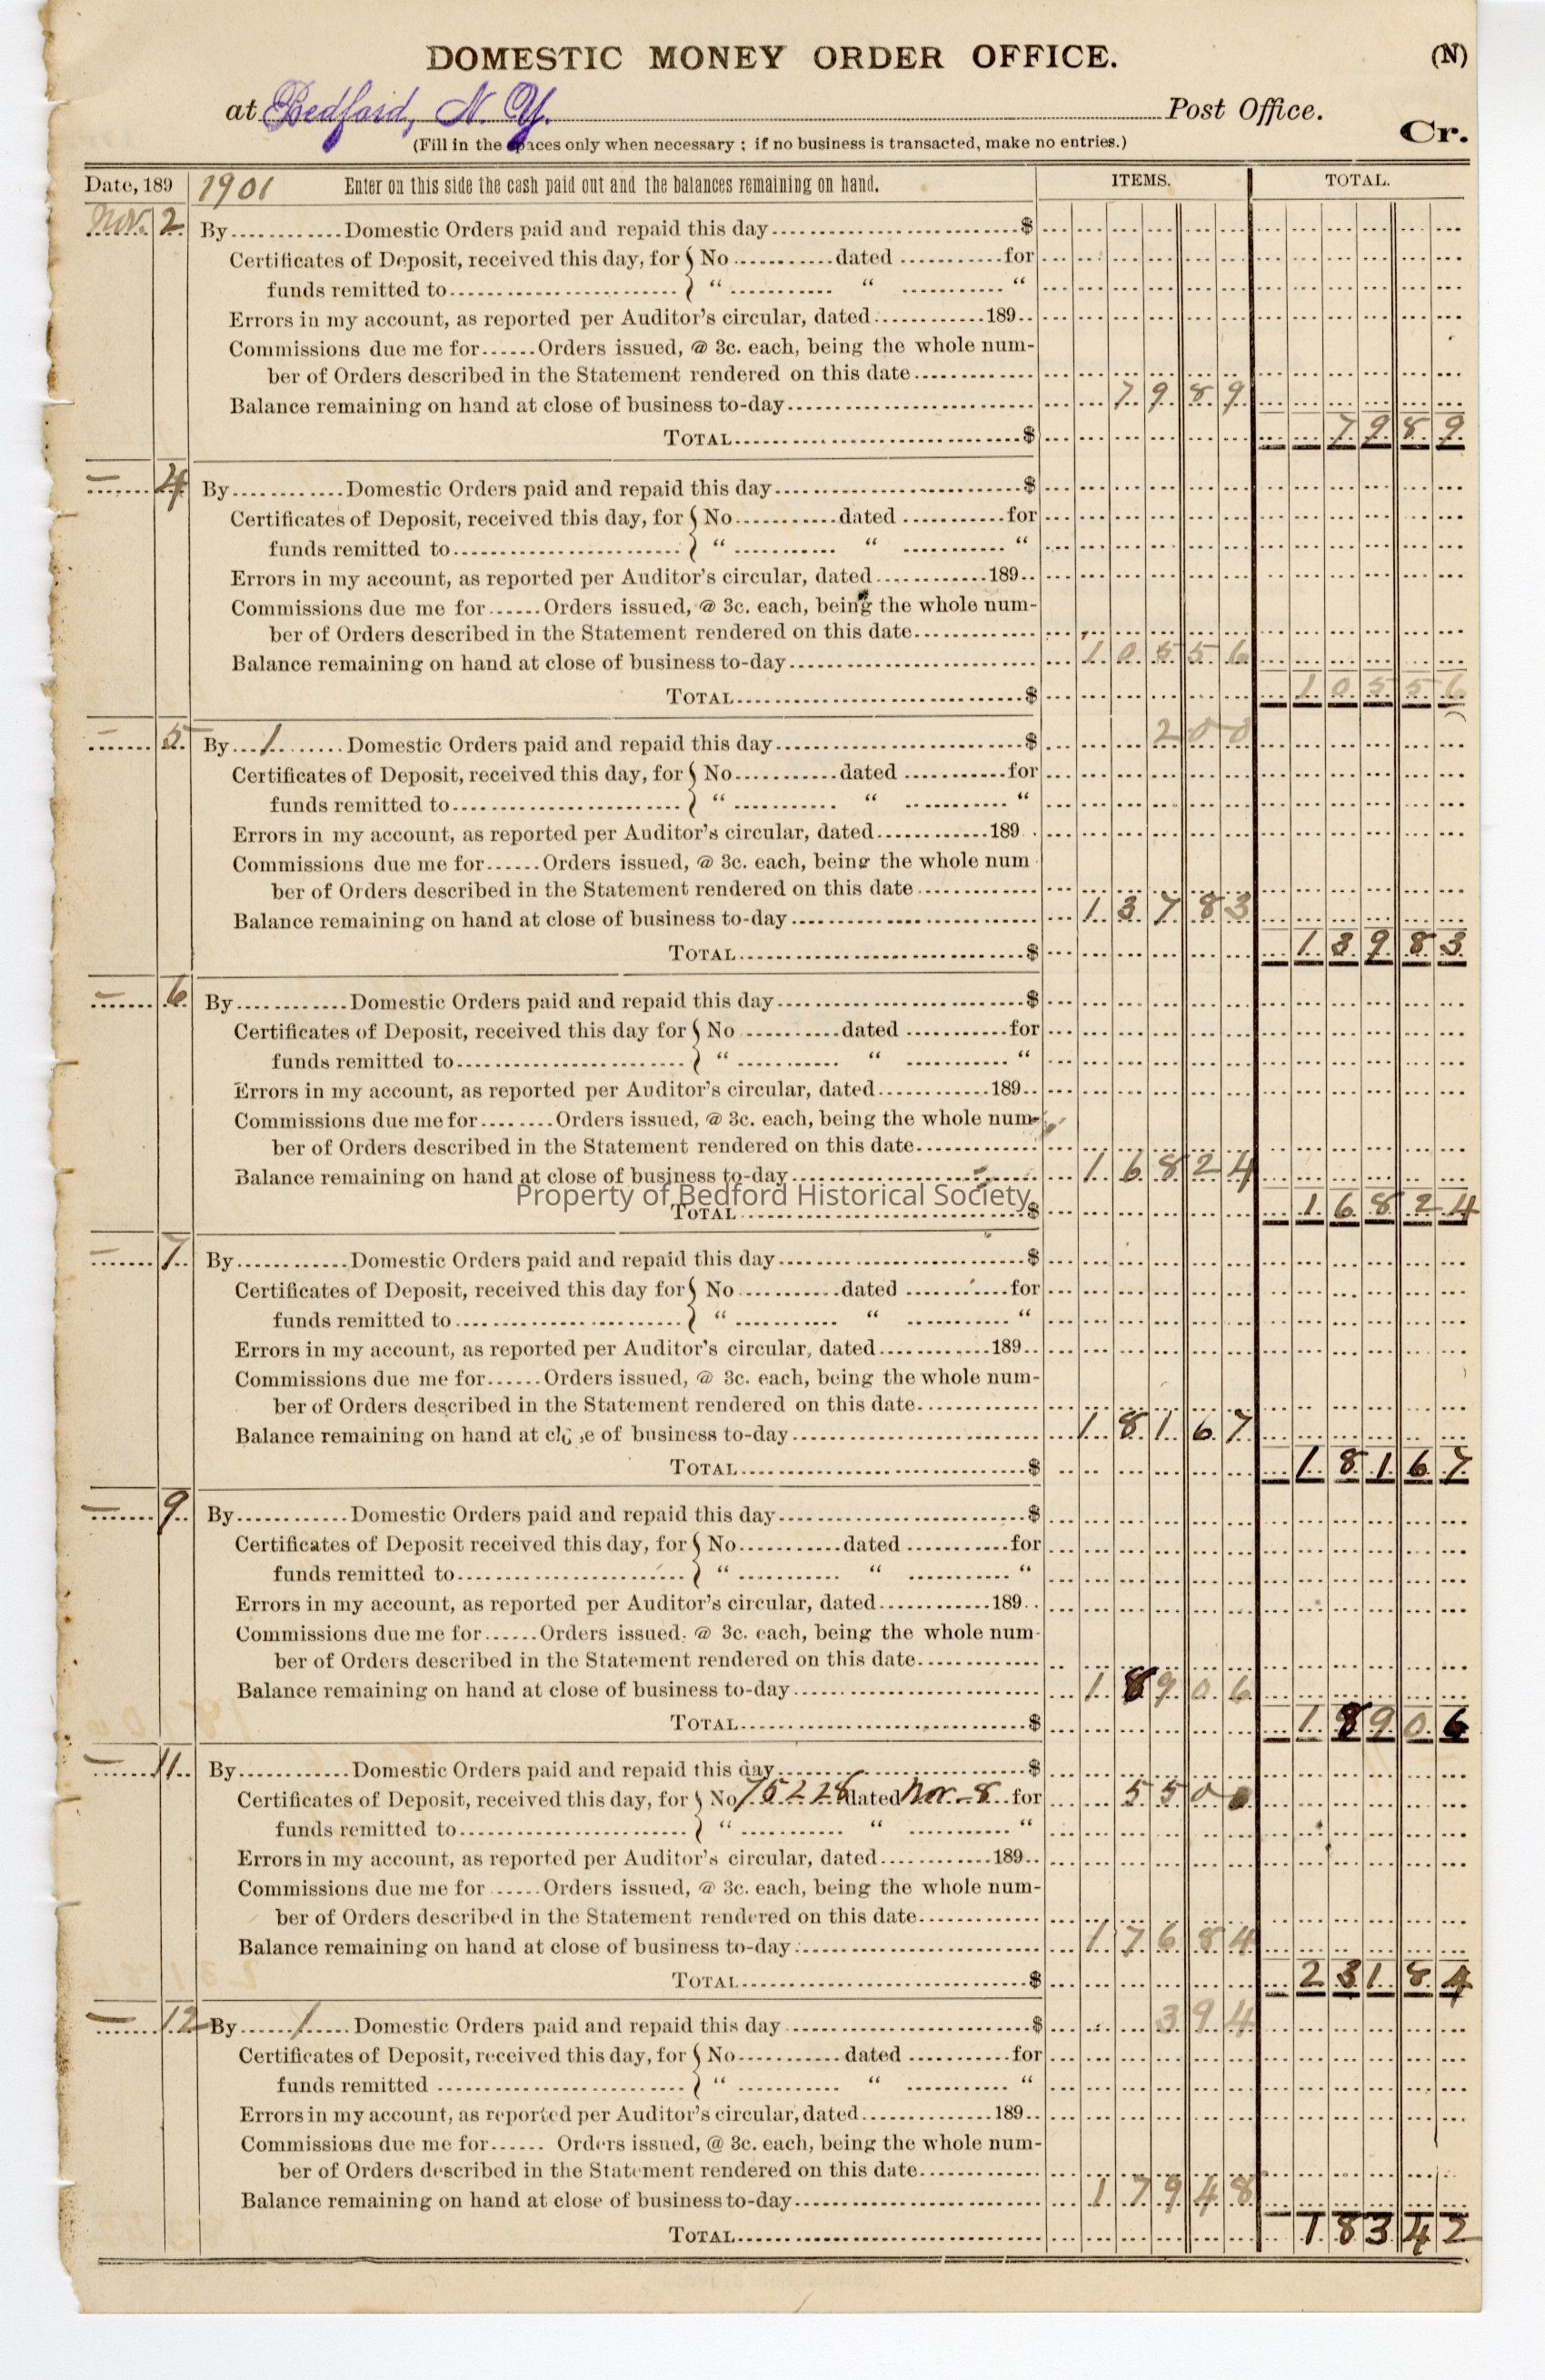 DOMESTIC MONEY ORDER OFFICE. (N)
at Bedford, N. Y. Post Office.
Cr.
(Fill in the spaces only when necessary; if no business is transacted, make no entries.)
Date, 189 1901 Enter on this side the cash paid out and the balances remaining on hand. ITEMS. TOTAL.
Nov. 2 By............Domestic Orders paid and repaid this day............$
Certificates of Deposit, received this day, for { No...........dated...........for
funds remitted to............ } "........... " ........... "
Errors in my account, as reported per Auditor's circular, dated............189..
Commissions due me for......Orders issued, @ 3c. each, being the whole num-
ber of Orders described in the Statement rendered on this date............
Balance remaining on hand at close of business to-day............ 79 89
TOTAL............$ 79 89
— 4 By............Domestic Orders paid and repaid this day............$
Certificates of Deposit, received this day, for { No...........dated...........for
funds remitted to............ } "........... " ........... "
Errors in my account, as reported per Auditor's circular, dated............189..
Commissions due me for......Orders issued, @ 3c. each, being the whole num-
ber of Orders described in the Statement rendered on this date............
Balance remaining on hand at close of business to-day............ 105 56
TOTAL............$ 105 56
— 5 By...1........Domestic Orders paid and repaid this day............$ 2 00
Certificates of Deposit, received this day, for { No...........dated...........for
funds remitted to............ } "........... " ........... "
Errors in my account, as reported per Auditor's circular, dated............189..
Commissions due me for......Orders issued, @ 3c. each, being the whole num
ber of Orders described in the Statement rendered on this date............
Balance remaining on hand at close of business to-day............ 137 83
TOTAL............$ 139 83
— 6 By............Domestic Orders paid and repaid this day............$
Certificates of Deposit, received this day for { No...........dated...........for
funds remitted to............ } "........... " ........... "
Errors in my account, as reported per Auditor's circular, dated............189..
Commissions due me for........Orders issued, @ 3c. each, being the whole num-
ber of Orders described in the Statement rendered on this date............
Balance remaining on hand at close of business to-day............ 168 24
Property of Bedford Historical Society
TOTAL............$ 168 24
— 7 By............Domestic Orders paid and repaid this day............$
Certificates of Deposit, received this day for { No...........dated...........for
funds remitted to............ } "........... " ........... "
Errors in my account, as reported per Auditor's circular, dated............189..
Commissions due me for......Orders issued, @ 3c. each, being the whole num-
ber of Orders described in the Statement rendered on this date............
Balance remaining on hand at close of business to-day............ 181 67
TOTAL............$ 181 67
— 9 By............Domestic Orders paid and repaid this day............$
Certificates of Deposit received this day, for { No...........dated...........for
funds remitted to............ } "........... " ........... "
Errors in my account, as reported per Auditor's circular, dated............189..
Commissions due me for......Orders issued, @ 3c. each, being the whole num-
ber of Orders described in the Statement rendered on this date............
Balance remaining on hand at close of business to-day............ 189 06
TOTAL............$ 189 06
— 11 By............Domestic Orders paid and repaid this day............$
Certificates of Deposit, received this day, for { No 75228 dated Nov. 8 for 55 00
funds remitted to............ } "........... " ........... "
Errors in my account, as reported per Auditor's circular, dated............189..
Commissions due me for......Orders issued, @ 3c. each, being the whole num-
ber of Orders described in the Statement rendered on this date............
Balance remaining on hand at close of business to-day............ 176 84
TOTAL............$ 231 84
— 12 By......1.....Domestic Orders paid and repaid this day............$ 3 94
Certificates of Deposit, received this day, for { No...........dated...........for
funds remitted............ } "........... " ........... "
Errors in my account, as reported per Auditor's circular, dated............189..
Commissions due me for...... Orders issued, @ 3c. each, being the whole num-
ber of Orders described in the Statement rendered on this date............
Balance remaining on hand at close of business to-day............ 179 48
TOTAL............ 183 42